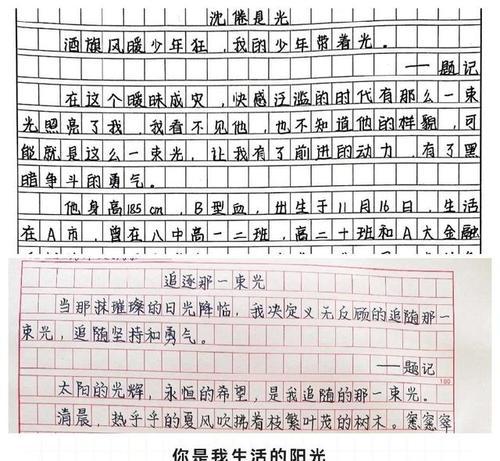 沈倦是光
酒旗风暖少年狂，我的少年带着光。
——题记
在这个暧昧成灾，快感泛滥的时代有那么一束
光照亮了我，我看不见他，也不知道他的样貌，可
能就是这么一束光，让我有了前进的动力，有了黑
暗争斗的勇气。
他身高185cm，B型血，出生于11月16日，生活
在A市，曾在八中高一二班，高二十班和A大金融
追逐那一束光
当那抹璀璨的日光降临，我决定义无反顾的追随那一
束光，追随坚持和勇气。
——题记
100
太阳的光辉，永恒的希望，是我追随的那一束光。
清晨，热乎乎的夏风吹拂着枝繁叶茂的树木。窸窸窣
你是我生活的阳光